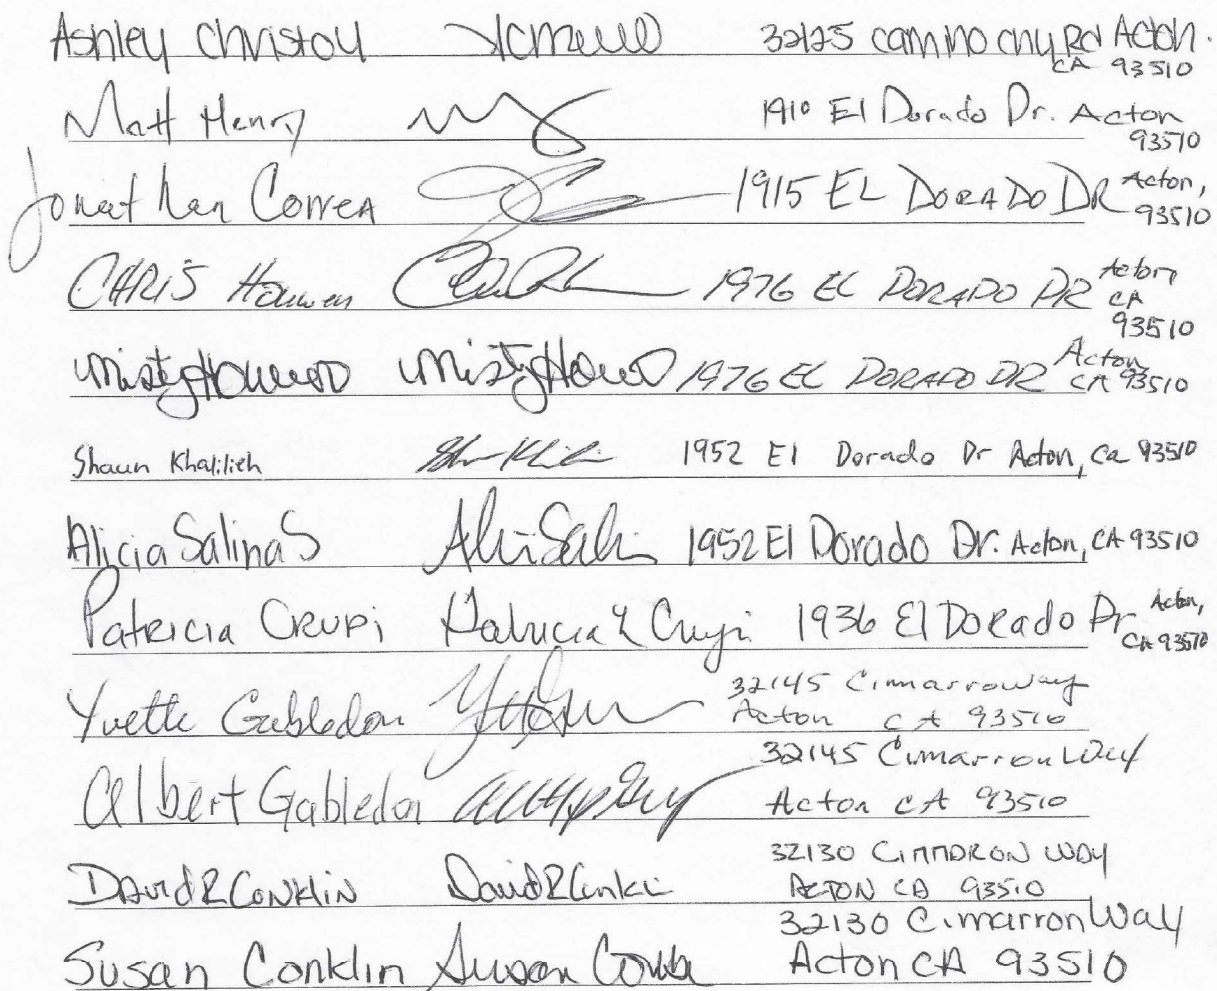 Ashley Christou 32125 camino cnyn Rd Acton.
CA 93510
Matt Henry 1910 El Dorado Dr. Acton
93510
Jonathan Correa 1915 EL DORADO DR Acton,
93510
CHRIS 1976 EL DORADO DR Acton
CA
93510
Misty Misty 1976 EL DORADO DR Acton,
CA 93510
Shaun Khalilieh 1952 El Dorado Dr Acton, Ca 93510
Alicia Salinas 1952 El Dorado Dr. Acton, CA 93510
Patricia CRUPi Patricia L Crupi 1936 El Dorado Dr Acton,
CA 93510
Yvette Gabledon 32145 Cimarron way
Acton CA 93510
Albert Gabledon 32145 Cimarron Way
Acton CA 93510
David R Conklin David R Conkli 32130 CIMMARON WAY
ACTON CA 93510
Susan Conklin Susan 32130 Cimarron Way
Acton CA 93510